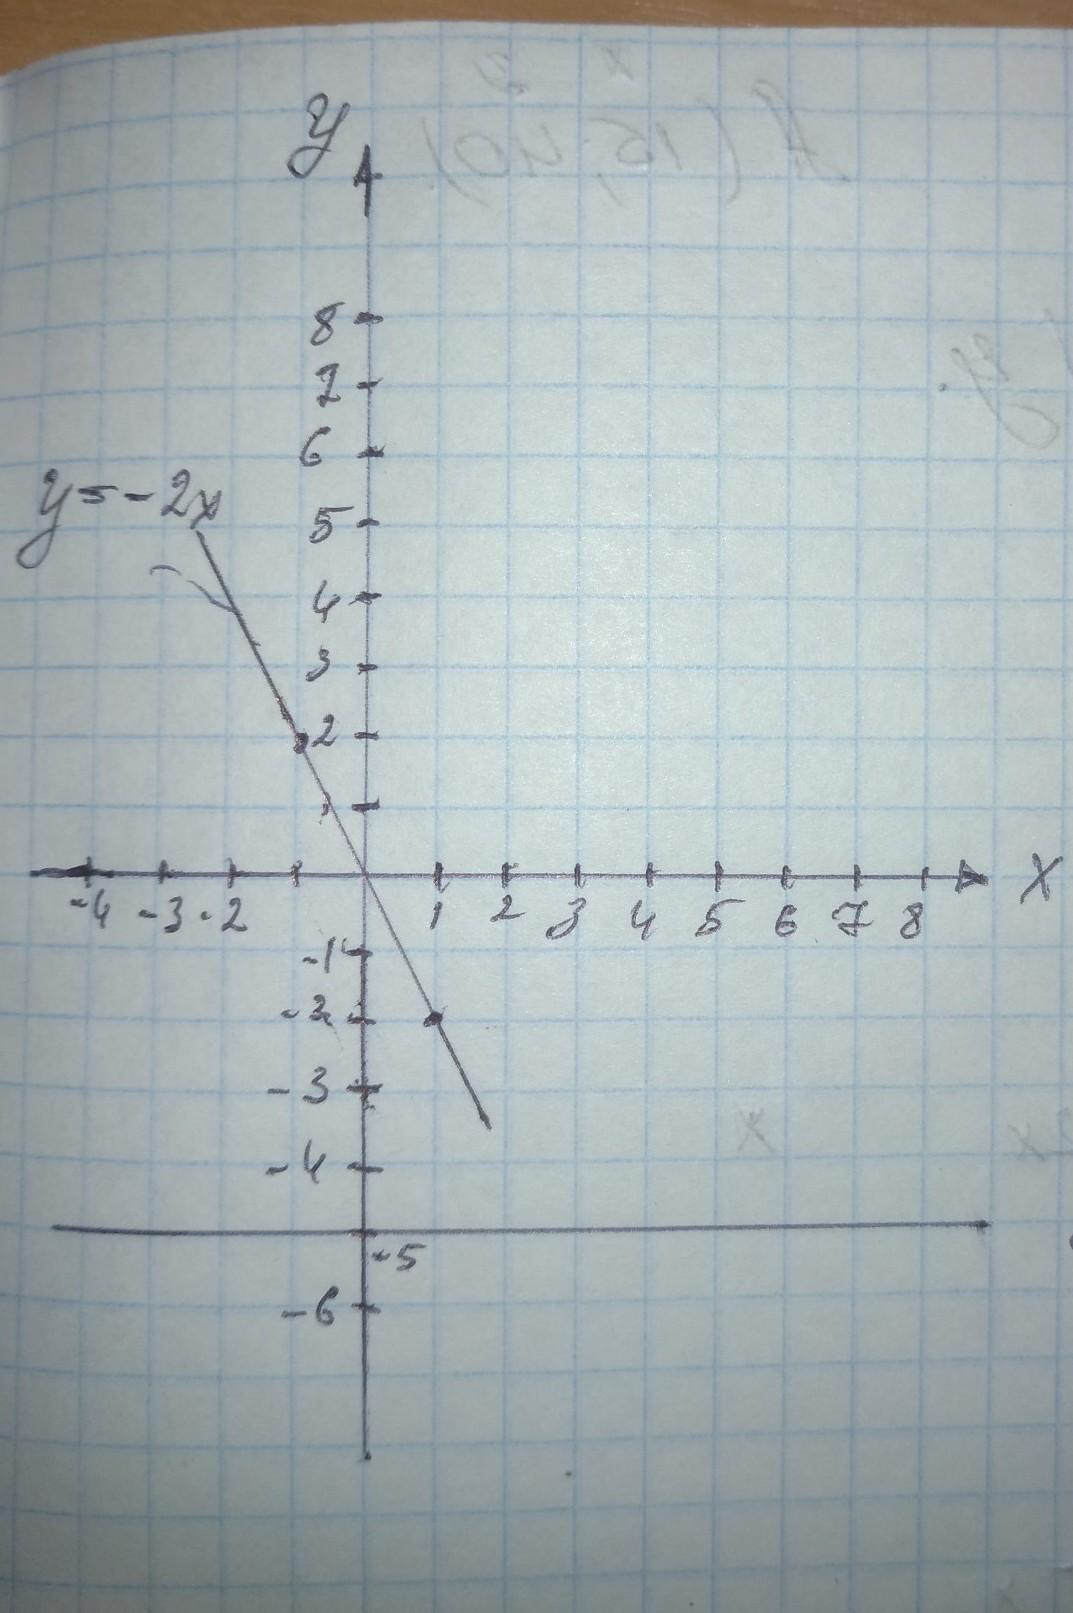 y
8
7
6
y=-2x
5
4
3
2
1
X
-4 -3 -2 1 2 3 4 5 6 7 8
-1
-2
-3
-4
-5
-6